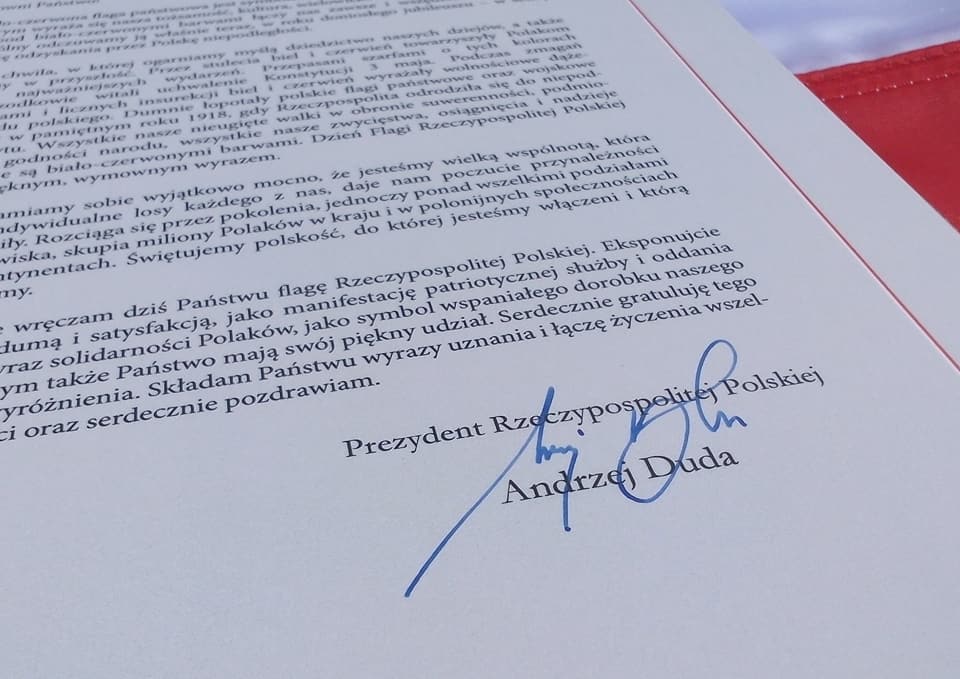 owni Państwo!
ło-czerwona flaga państwowa jest
ym wyraża się nasza tożsamość, kultura,
pod biało-czerwonymi barwami łączy nas zawsze i
ólny odczuwamy to właśnie teraz, w roku doniosłego jubileuszu –
odzyskania przez Polskę niepodległości.
chwila, w której ogarniamy myślą dziedzictwo naszych dziejów, a także
y w przyszłość. Przez stulecia biel i czerwień towarzyszyły Polakom
najważniejszych wydarzeń. Przepasani szarfami o tych kolorach
zodkowie witali uchwalenie Konstytucji 3 maja. Podczas zmagań
ami i licznych insurekcji biel i czerwień wyrażały wolnościowe dąże-
du polskiego. Dumnie łopotały polskie flagi państwowe oraz wojskowe
w pamiętnym roku 1918, gdy Rzeczpospolita odrodziła się do niepod-
ytu. Wszystkie nasze nieugięte walki w obronie suwerenności, podmio-
godności narodu, wszystkie nasze zwycięstwa, osiągnięcia i nadzieje
e są biało-czerwonymi barwami. Dzień Flagi Rzeczypospolitej Polskiej
ęknym, wymownym wyrazem.
amiamy sobie wyjątkowo mocno, że jesteśmy wielką wspólnotą, która
ndywidualne losy każdego z nas, daje nam poczucie przynależności
iły. Rozciąga się przez pokolenia, jednoczy ponad wszelkimi podziałami
wiska, skupia miliony Polaków w kraju i w polonijnych społecznościach
ntynentach. Świętujemy polskość, do której jesteśmy włączeni i którą
my.
e wręczam dziś Państwu flagę Rzeczypospolitej Polskiej. Eksponujcie
dumą i satysfakcją, jako manifestację patriotycznej służby i oddania
yraz solidarności Polaków, jako symbol wspaniałego dorobku naszego
ym także Państwo mają swój piękny udział. Serdecznie gratuluję tego
yróżnienia. Składam Państwu wyrazy uznania i łączę życzenia wszel-
ci oraz serdecznie pozdrawiam.
Prezydent Rzeczypospolitej Polskiej
Andrzej Duda